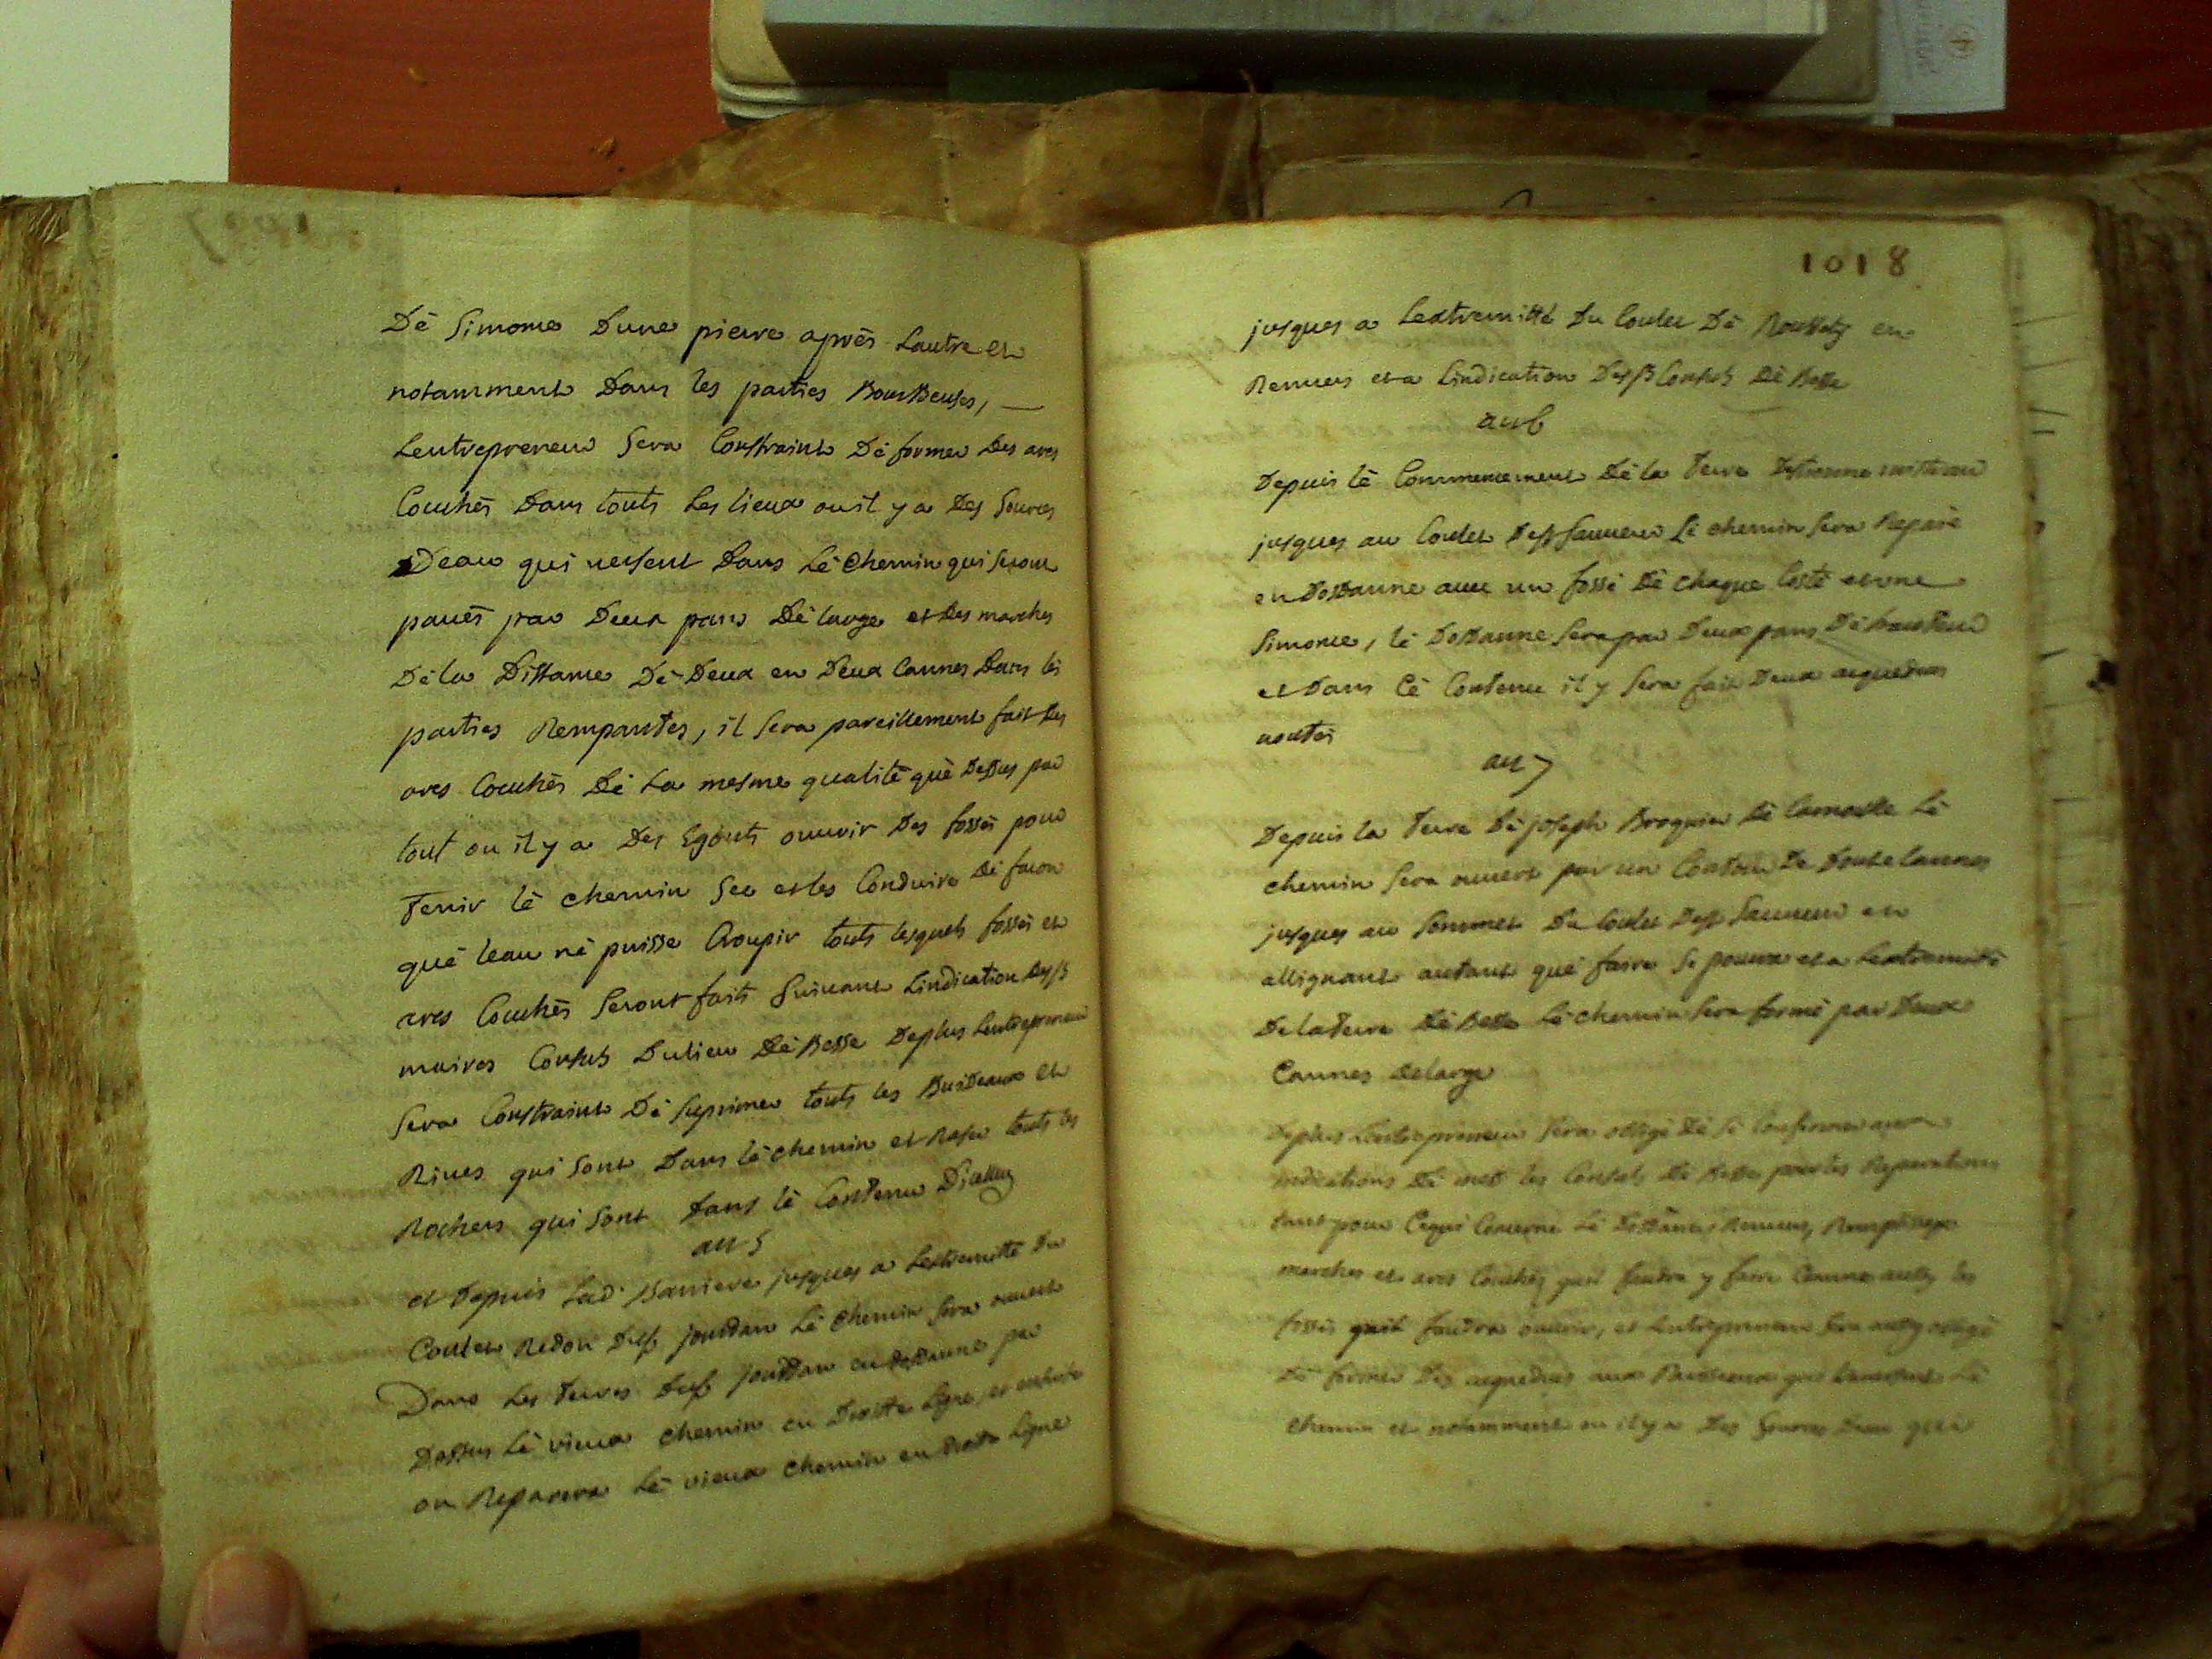 Dè Simome Dune pierre après Lautre et
notamment Dans les parties Bourbeuses, —
Lentrepreneur Sera Constraint Dè former des arcs
Couchés Dans touts Les lieux ou il y a Des Sources
Deau qui versent Dans Lè Chemin qui Seront
pavés par Deux pans Dè large et Des marches
Dè la Distance Dè Deux en Deux Cannes Dans les
parties Rempantes, il Sera pareillement fait Des
arcs Couchés Dè La mesme qualité què Dessus par
tout ou il y a Des Egouts ouvrir Des fossés pour
Tenir lè chemin Sec et les Conduire Dè facon
què leau nè puisse Croupir touts lesquels fossés et
arcs Couchés Seront faits Suivant Lindication
maires Consuls Du lieu Dè Besse Deplus Lentrepreneur
Sera Constraint Dè Suprimer touts les et
Rives qui Sont Dans lè chemin et Raser touts les
Rochers qui Sont Dans lè Contenu Dicelluy
art 5
et Depuis Lad. Barriere jusques a Lextremitté Du
Coulet Redon Jourdan Lè Chemin Sera ouvert
Dans Les Terres Jourdan en Dosdanne par
Dessus Lè vieux chemin en Droitte Ligne et ensuite
on Reparera Lè vieux chemin en Droite Ligne
1018
jusques a Lextremitté Du Coulet Dè en
Remuers et a Lindication Consuls Dè Besse
art 6
Depuis lè Commencement Dè la Terre Destienne
jusques au Coulet Sauveur Lè chemin Sera Reparé
en Dosdanne avec un fossé Dè chaque Costé et une
Simome, lè Dosdanne Sera par Deux pans Dè hauteur
et Dans Cè Contenu il y Sera fait Deux aqueducs
voutés
art 7
Depuis la Terre Dè joseph Broquier Dè Lè
chemin Sera ouvert par un Contour De Douze Cannes
jusques au Sommet Du Coulet Sauveur en
allignant autant què faire Se pourra et a Lextremitté
De la Terre Dè Besse Lè chemin Sera formé par Deux
Cannes De large
Deplus Lentrepreneur Sera obligé Dè Sè Conformer aux
indications Dè les Consuls Dè Besse pour les Reparations
tant pour Cequi Concerne Lè Dosdanne
marches et arcs Couchés quil faudra y faire Comme aussy les
fossés quil faudra ouvrir, et Lentrepreneur Sera aussy obligé
Dè former Des aqueducs aux Ruisseaux qui traversent Lè
Chemin et notamment ou il y a Des Sources Deau